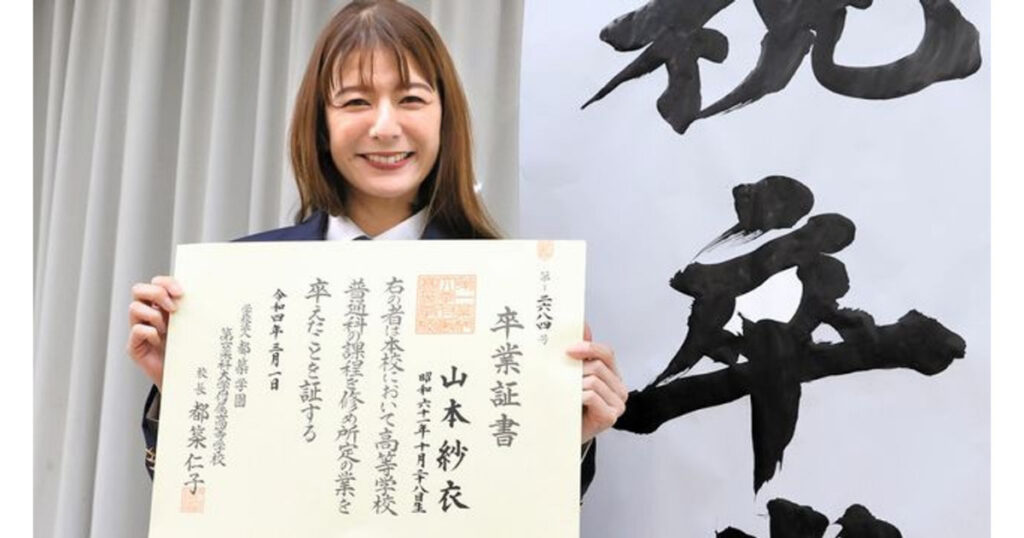 祝卒
第一二六八四号
卒業証書
山本紗衣
昭和六十一年十月二十八日生
右の者は本校において高等学校
普通科の課程を修め所定の業を
卒えたことを証する
令和四年三月一日
学校法人都築学園
第一薬科大学付属高等学校
校長 都築仁子